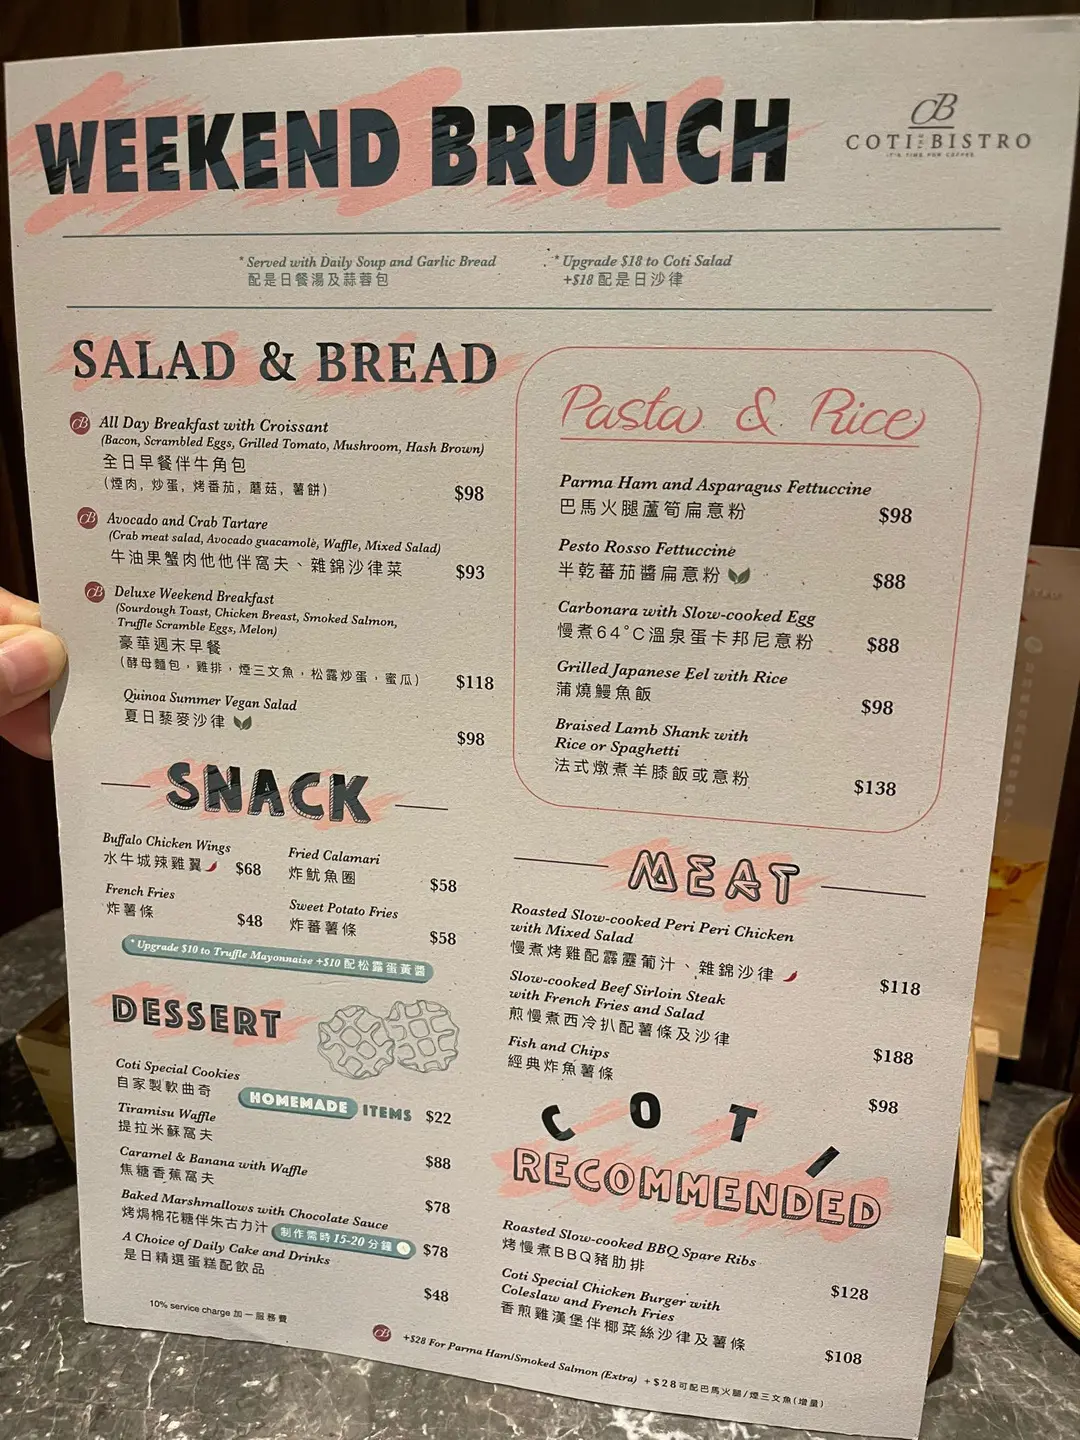 WEEKEND BRUNCH
CB
COTI THE BISTRO
IT'S TIME FOR COFFEE
* Served with Daily Soup and Garlic Bread
配是日餐湯及蒜蓉包
* Upgrade $18 to Coti Salad
+$18 配是日沙律
SALAD & BREAD
CB All Day Breakfast with Croissant
(Bacon, Scrambled Eggs, Grilled Tomato, Mushroom, Hash Brown)
全日早餐伴牛角包
(煙肉, 炒蛋, 烤番茄, 蘑菇, 薯餅)
$98
CB Avocado and Crab Tartare
(Crab meat salad, Avocado guacamole, Waffle, Mixed Salad)
牛油果蟹肉他他伴窩夫、雜錦沙律菜
$93
CB Deluxe Weekend Breakfast
(Sourdough Toast, Chicken Breast, Smoked Salmon,
Truffle Scramble Eggs, Melon)
豪華週末早餐
(酵母麵包，雞排，煙三文魚，松露炒蛋，蜜瓜)
$118
Quinoa Summer Vegan Salad
夏日藜麥沙律
$98
Pasta & Rice
Parma Ham and Asparagus Fettuccine
巴馬火腿蘆筍扁意粉
$98
Pesto Rosso Fettuccine
半乾蕃茄醬扁意粉
$88
Carbonara with Slow-cooked Egg
慢煮64°C溫泉蛋卡邦尼意粉
$88
Grilled Japanese Eel with Rice
蒲燒鰻魚飯
$98
Braised Lamb Shank with
Rice or Spaghetti
法式燉煮羊膝飯或意粉
$138
SNACK
Buffalo Chicken Wings
水牛城辣雞翼
$68
Fried Calamari
炸魷魚圈
$58
French Fries
炸薯條
$48
Sweet Potato Fries
炸蕃薯條
$58
* Upgrade $10 to Truffle Mayonnaise +$10 配松露蛋黃醬
MEAT
Roasted Slow-cooked Peri Peri Chicken
with Mixed Salad
慢煮烤雞配霹靂葡汁、雜錦沙律
$118
Slow-cooked Beef Sirloin Steak
with French Fries and Salad
煎慢煮西冷扒配薯條及沙律
$188
Fish and Chips
經典炸魚薯條
$98
DESSERT
Coti Special Cookies
自家製軟曲奇
HOMEMADE ITEMS
$22
Tiramisu Waffle
提拉米蘇窩夫
$88
Caramel & Banana with Waffle
焦糖香蕉窩夫
$78
Baked Marshmallows with Chocolate Sauce
烤焗棉花糖伴朱古力汁
制作需時15-20分鐘
$78
A Choice of Daily Cake and Drinks
是日精選蛋糕配飲品
$48
COTI
RECOMMENDED
Roasted Slow-cooked BBQ Spare Ribs
烤慢煮BBQ豬肋排
$128
Coti Special Chicken Burger with
Coleslaw and French Fries
香煎雞漢堡伴椰菜絲沙律及薯條
$108
10% service charge 加一服務費
CB +$28 For Parma Ham/Smoked Salmon (Extra) +$28可配巴馬火腿/煙三文魚(增量)